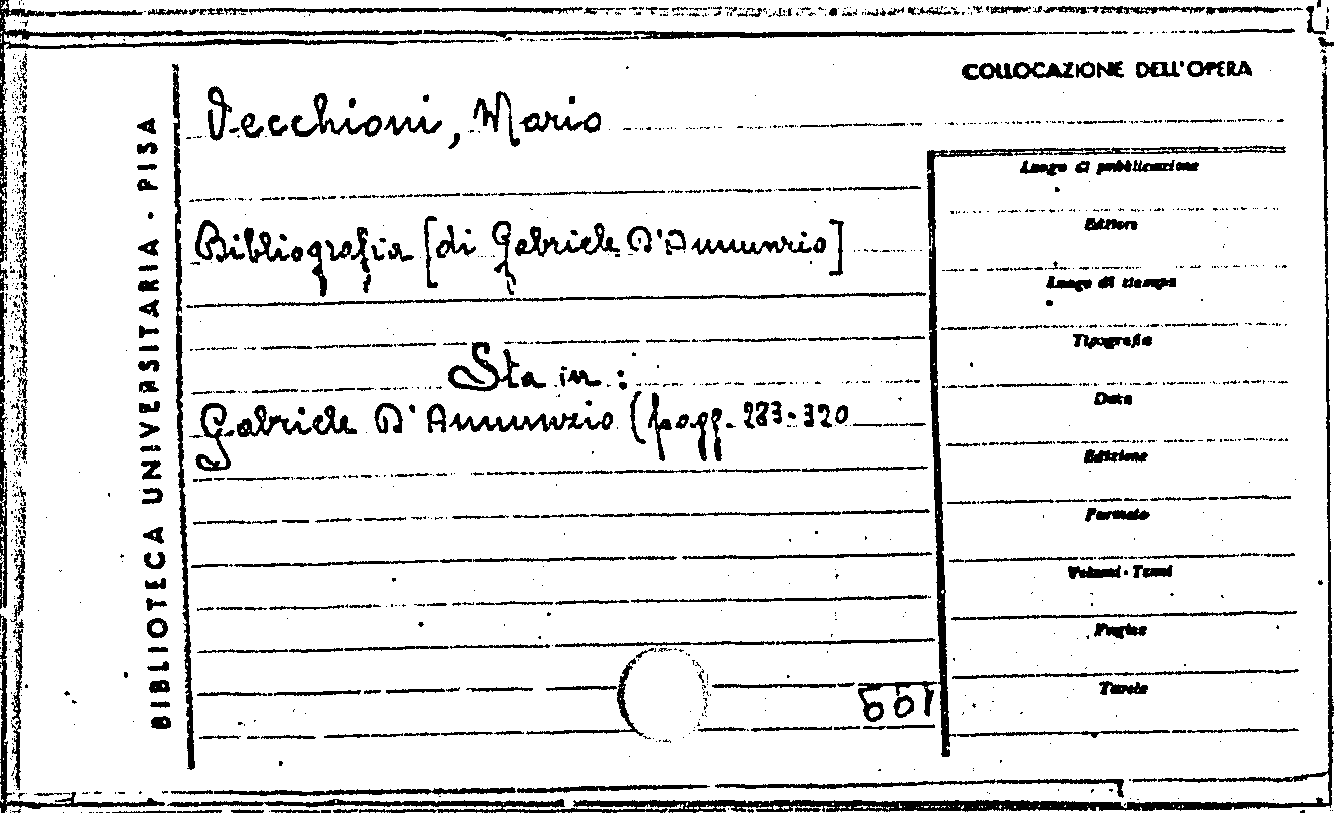 COLLOCAZIONE DELL'OPERA
Vecchioni, Mario
BIBLIOTECA UNIVERSITARIA - PISA
Bibliografia [di Gabriele D'Annunzio]
Sta in:
Gabriele D'Annunzio (pagg. 283-320
Luogo di pubblicazione
Editore
Luogo di stampa
Tipografia
Data
Edizione
Formato
Volumi - Tomi
Pagine
Tavole